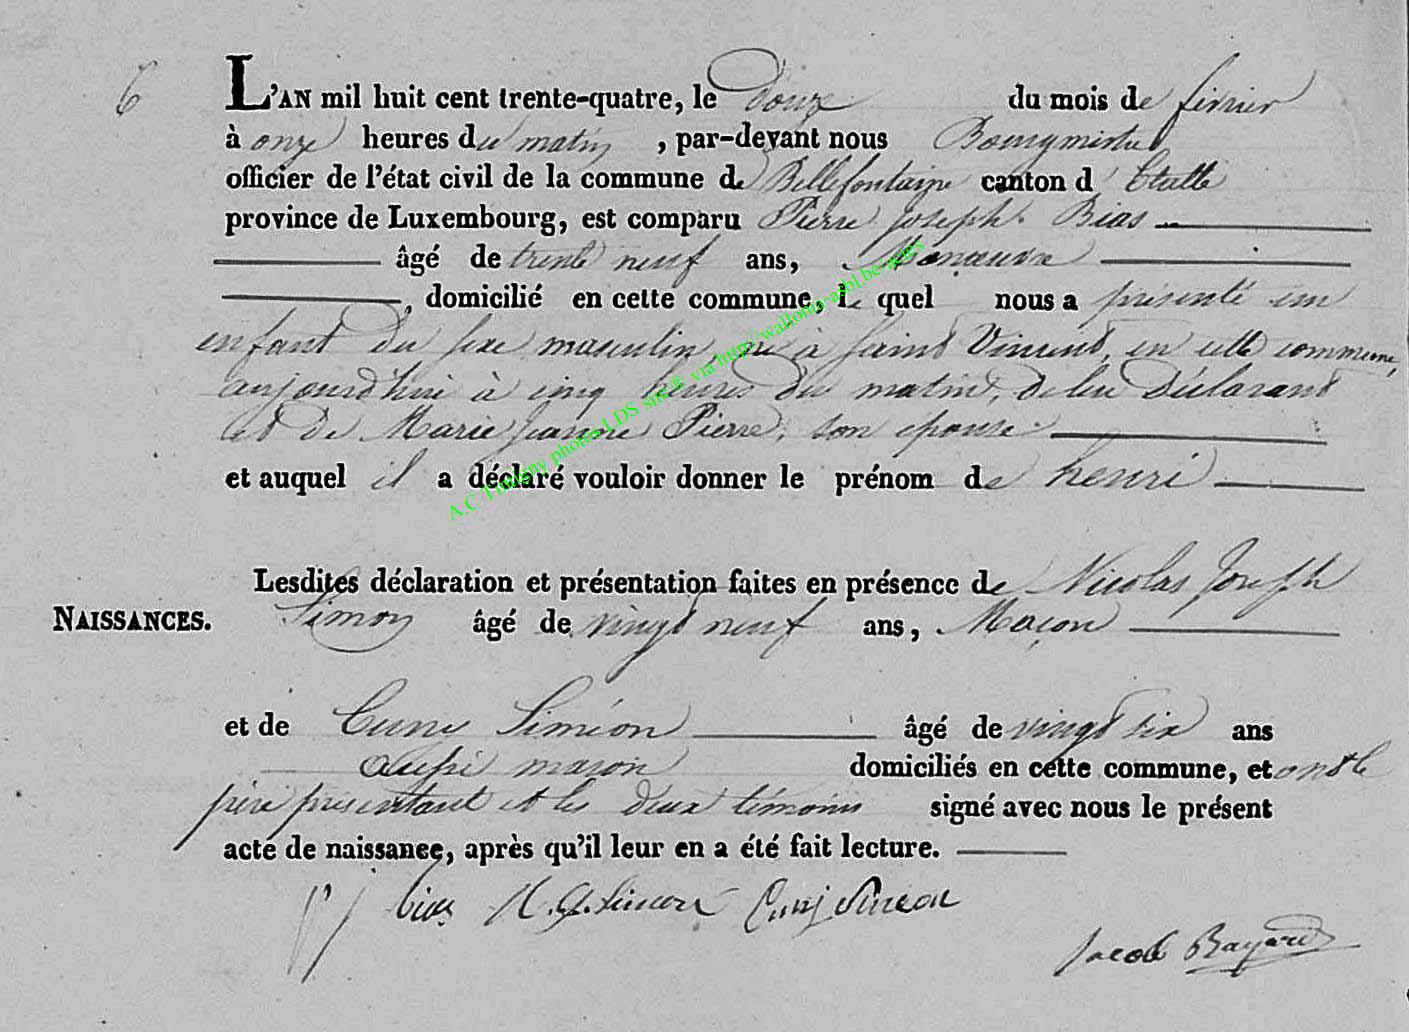 6
L'AN mil huit cent trente-quatre, le Douze du mois de fevrier
à onze heures du matin, par-devant nous Bourgmestre
officier de l'état civil de la commune de Bellefontaine canton d'Etalle
province de Luxembourg, est comparu Pierre Joseph Bias
âgé de trente neuf ans, Manœuvre
, domicilié en cette commune, le quel nous a présenté un
enfant du sexe masculin, né à Saint Vincent, en cette commune,
aujourd'hui à cinq heures du matin, de lui Déclarant
et de Marie Jeanne Pierre, son épouse
et auquel il a déclaré vouloir donner le prénom de henri
Lesdites déclaration et présentation faites en présence de Nicolas Joseph
NAISSANCES.
Simon âgé de vingt neuf ans, Maçon
et de Cuny Siméon âgé de vingt six ans
aussi maçon domiciliés en cette commune, et ont le
père présentant et les deux témoins signé avec nous le présent
acte de naissance, après qu'il leur en a été fait lecture.
pj bias N.J. Simon Cuny Simeon
Jacob Bayard
A.C Tintigny photos LDS site® via http://wallonia-asbl.be-actes